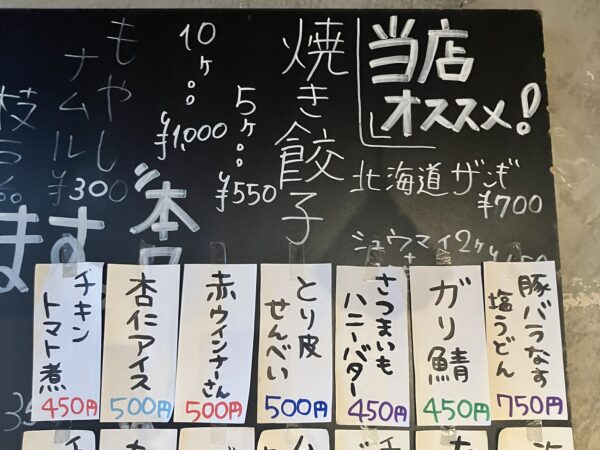 当店
オススメ!
北海道ザンギ
¥700
シュウマイ2ヶ
焼き餃子
5ヶ
¥550
10ヶ
¥1,000
もやし
ナムル
¥300
ます
豚バラなす
塩うどん
750円
ガリ鯖
450円
さつまいも
ハニーバター
450円
とり皮
せんべい
500円
赤ウインナーさん
500円
杏仁アイス
500円
チキン
トマト煮
450円